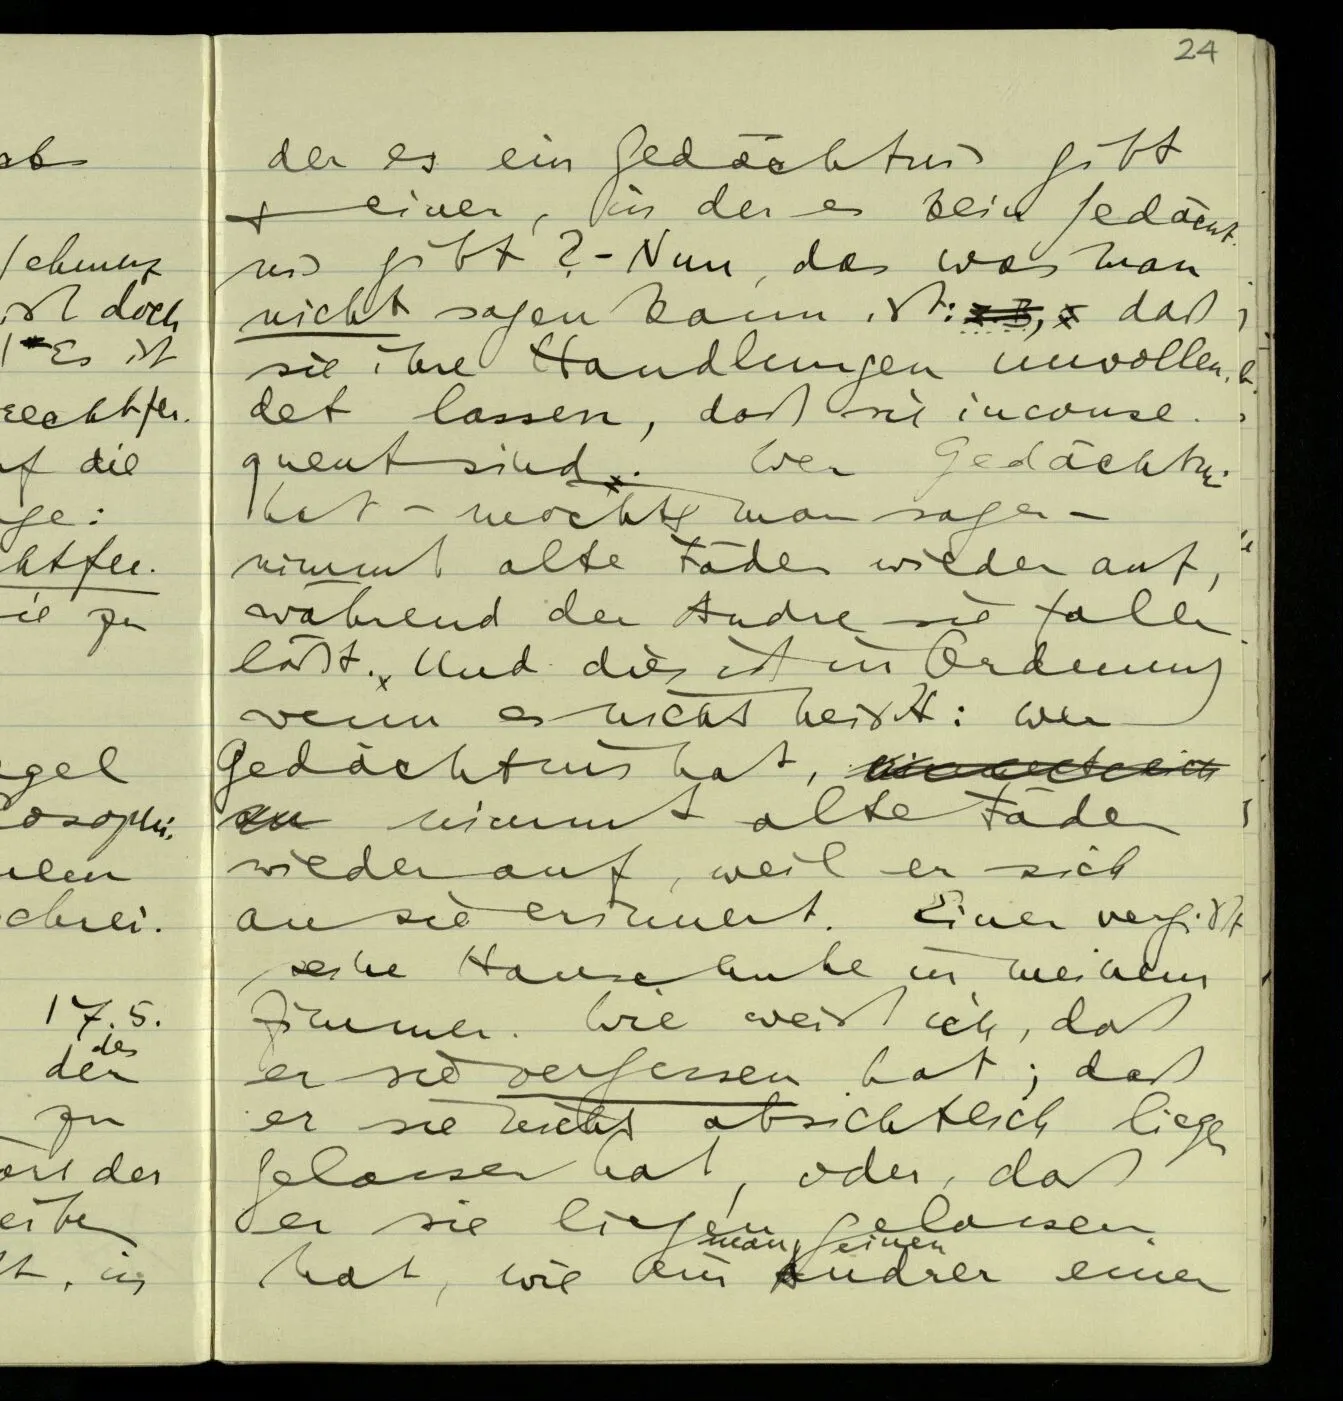 24
der es ein Gedächtnis gibt
& einer, in der es kein Gedächt-
nis gibt? – Nun, das was man
nicht sagen kann ist: z.B., daß
sie ihre Handlungen unvollen-
det lassen, daß sie inconse-
quent sind. Wer Gedächtni
hat – möchte man sagen –
nimmt alte Fäden wieder auf,
während der Andre sie fallen
läßt. Und dies ist in Ordnung
wenn es nicht heißt: wer
Gedächtnis hat,
nimmt alte Fäden
wieder auf, weil er sich
an sie erinnert. Einer vergißt
seine Handschuhe in meinem
Zimmer. Wie weiß ich, daß
er sie vergessen hat; daß
er sie nicht absichtlich liegen
gelassen hat, oder, daß
er sie liegen gelassen
man, einen
hat, wie ein Andrer einen
ist doch
Es ist
rechtfer-
f die
ge:
htfer-
ie zu
gel
osophi-
chrei-
17.5.
des
der
zu
der